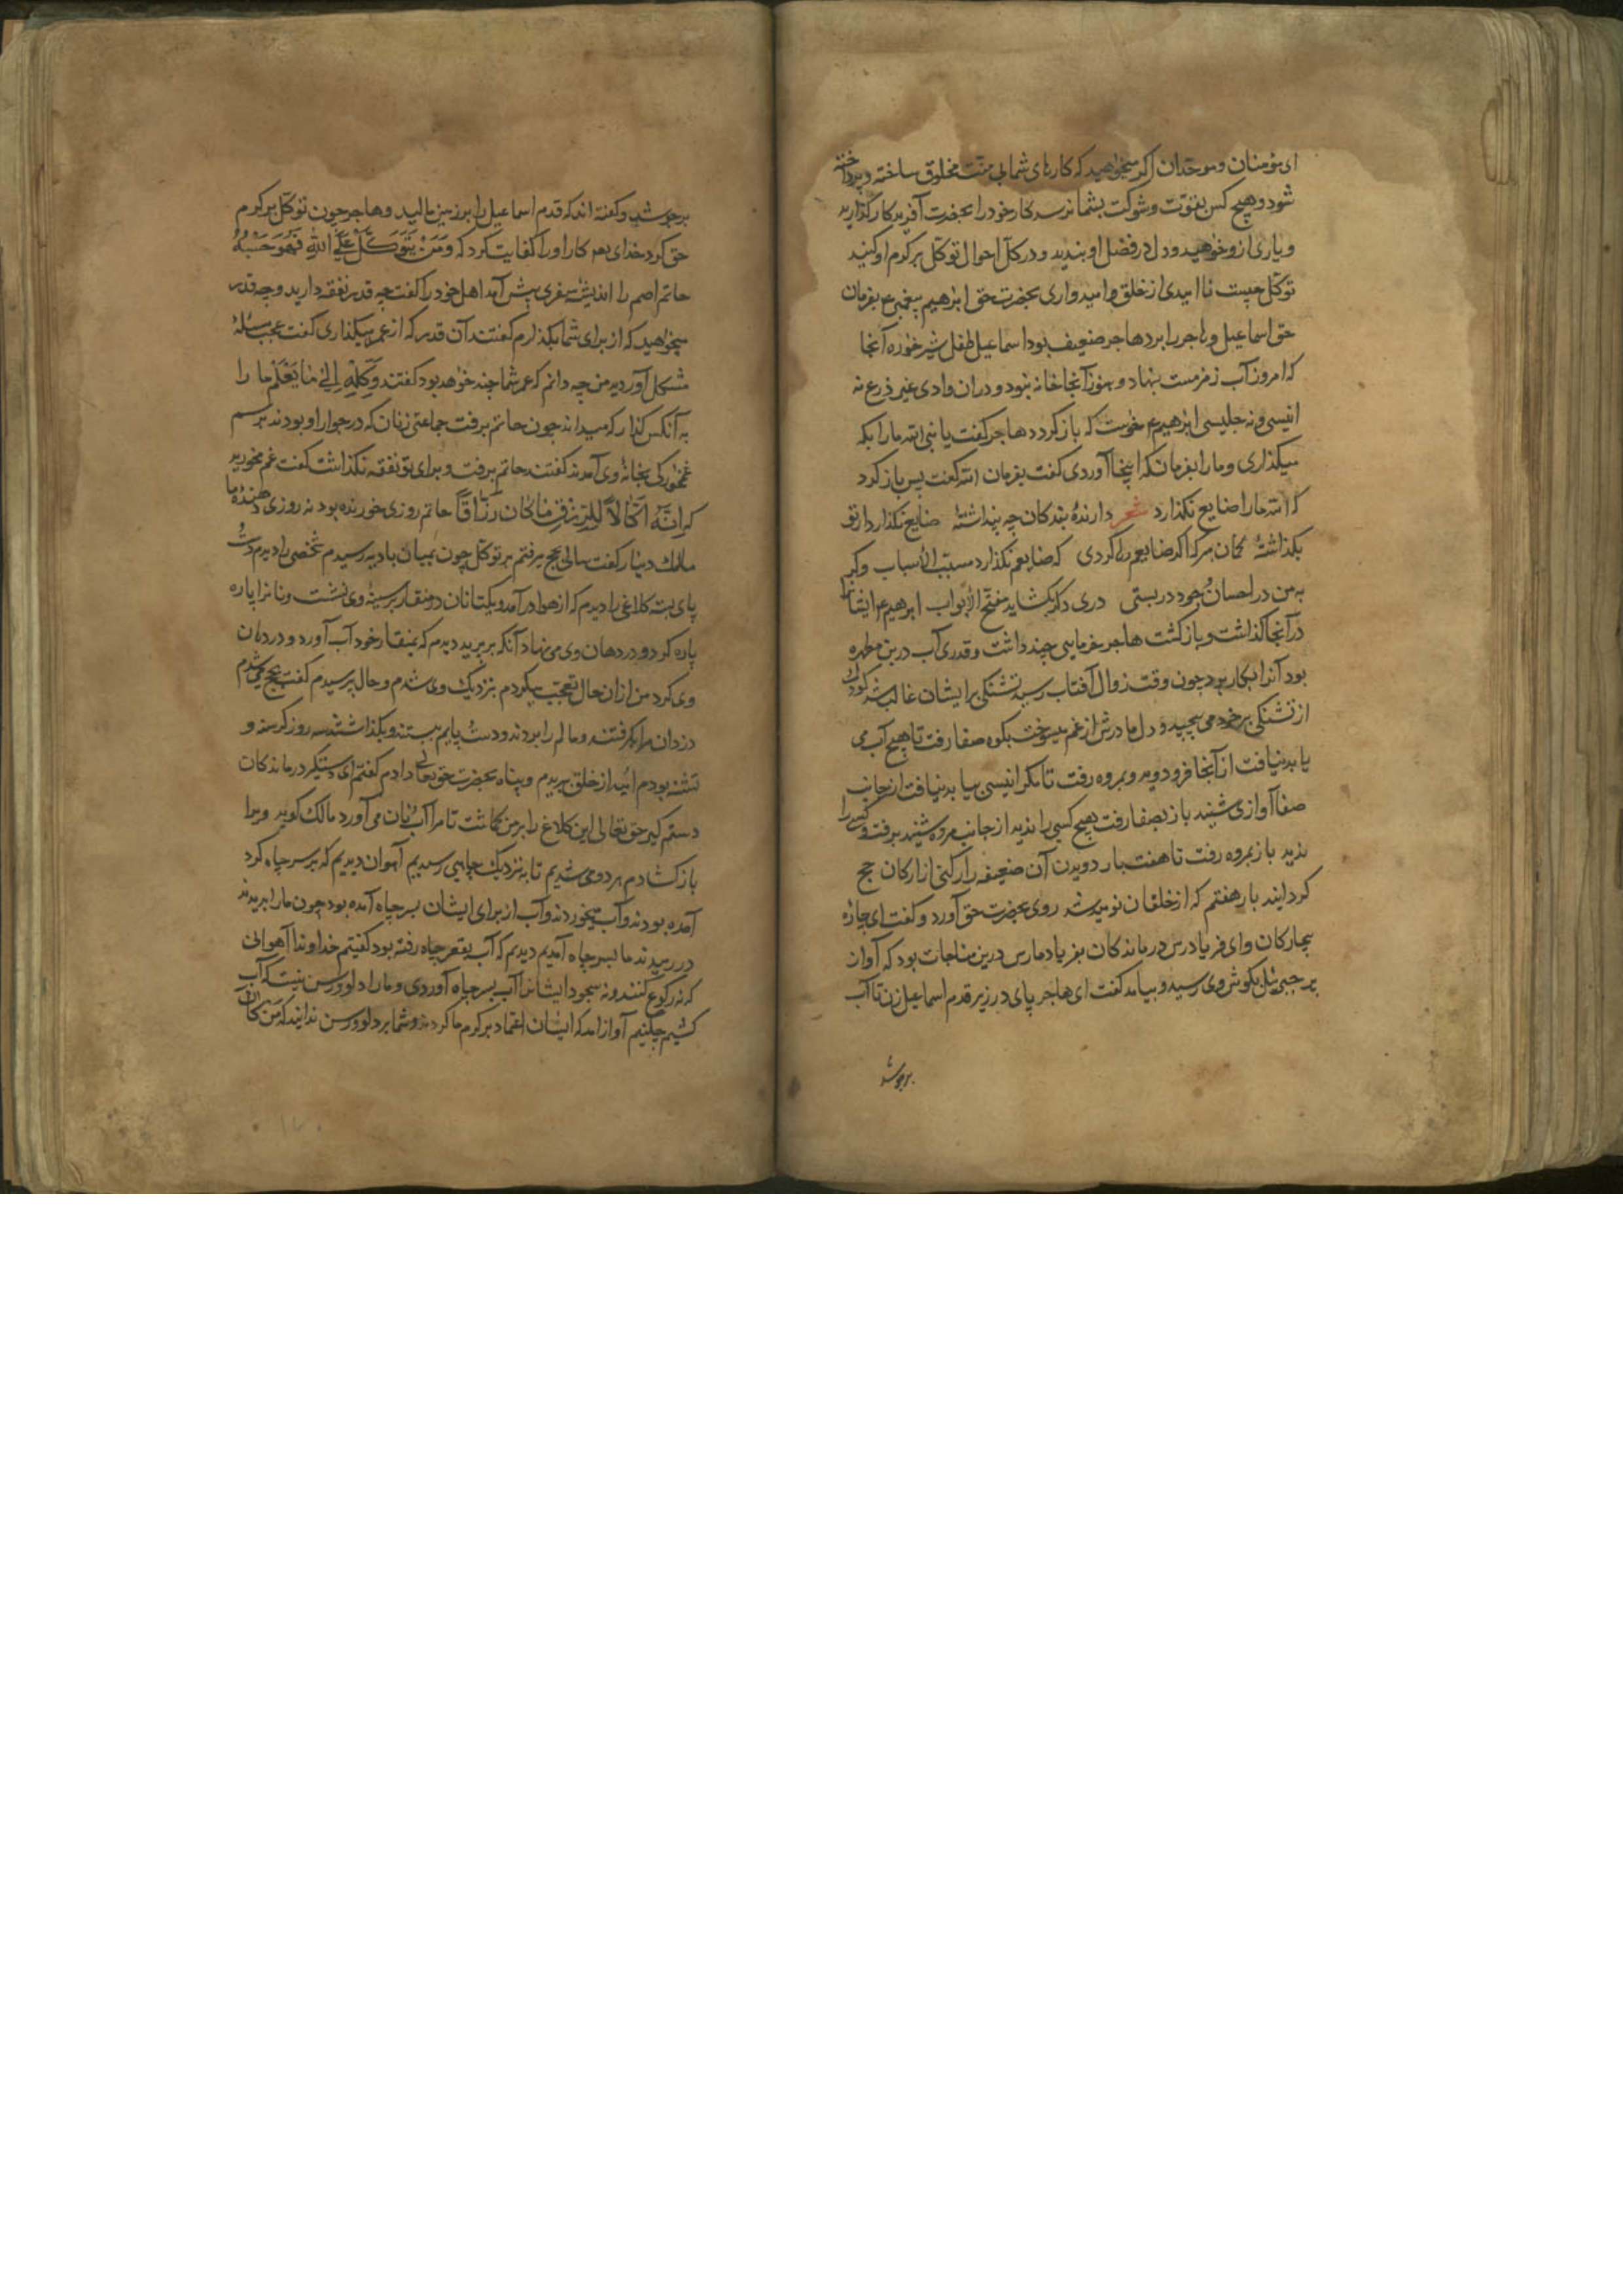 ای مؤمنان و موحدان اکر میخواهید که کارهای شما بی منت مخلوق ساخته و پرداخته
شود و هیچ کس بقوت و شوکت بشما نرسد کار خود را بحضرت آفریدکار کذارید
و یاری ازو خواهید و دل در فضل او بندید و در کل احوال توکل بر کرم او کنید
توکل چیست نا امیدی از خلق و امیدواری بحضرت حق ابرهیم پیغمبر ع بفرمان
حق اسماعیل و هاجر را ببرد هاجر ضعیفه بود اسماعیل طفل شیر خواره آنجا
که امروز آب زمزمست بنهاد و هنوز آنجا خانه نبود و دران وادی غیر ذی زرع نه
انیسی و نه جلیسی ابرهیم ع میخواست که باز کردد هاجر کفت یا نبی الله ما را بکه
میکذاری و ما را بفرمان که اینجا آوردی کفت بفرمان الله کفت پس باز کرد
که الله ما را ضایع نکذارد شعر دارندهٔ بندکان چه پنداشتهٔ ضایع نکذارد ار تو
بکذاشتهٔ کمان مبر که اکر ضایعم رها کردی که ضایعم نکذارد مسبب الاسباب و کر
به من در احسان و جود در بستی دری دکر بکشاید مفتح الابواب ابرهیم ع ایشانرا
در آنجا کذاشت و باز کشت هاجر خرمایی چند داشت و قدری آب درین مطهره
بود آنرا بکار برد چون وقت زوال آفتاب رسید تشنکی بر ایشان غالب شد کودک
از تشنکی بر خود می پیچید و دل مادرش از غم میسوخت بکوه صفا رفت تا هیچ آب می
یابد نیافت از آنجا فرو دوید و بمروه رفت تا مکر انیسی بیابد نیافت از جانب
صفا آوازی شنید باز بصفا رفت هیچ کسی را ندید از جانب مروه شنید برفت و کسی را
ندید باز بمروه رفت تا هفت بار دویدن آن ضعیفه را رکنی از ارکان حج
کردانید بار هفتم که از خلقان نومید شد روی بحضرت حق آورد و کفت ای چارهٔ
بیچارکان و ای فریاد رس درماندکان بفریاد ما رس درین مناجات بود که آواز
پر جبرئیل بکوش وی رسید و بیامد کفت ای هاجر پای در زیر قدم اسماعیل زن تا آب
برجوشد
برجوشد و کفته اند که قدم اسماعیل را بر زمین مالید و هاجر چون توکل بر کرم
حق کرد خدای تعالی کار او را کفایت کرد که وَمَنْ يَتَوَكَّلْ عَلَى اللهِ فَهُوَ حَسْبُهُ
حاتم اصم را اندیشهٔ سفری پیش آمد اهل خود را کفت چه قدر نفقه دارید و چه قدر
میخواهید که از برای شما بکذارم کفتند آن قدر که از عمر میکذاری کفت عجب مسئلهٔ
مشکل آوردید من چه دانم که عمر شما چند خواهد بود کفتند وَكِلْهُ اِلٰى مَا يَعْلَمُ ما را
به آنکس کذار که میداند چون حاتم برفت جماعتی زنان که در جوار او بودند برسم
غمخوارکی بخانهٔ وی آمدند کفتند حاتم برفت و برای تو نفقه نکذاشت کفت غم مخورید
که اِنَّهُ اَكَّالاً لِلرِّزْقِ مَا كَانَ رَزَّاقًا حاتم روزی خورنده بود نه روزی دهندهٔ ما
مالک دینار کفت سالی بحج میرفتم بر توکل چون بمیان بادیه رسیدم شخصی را دیدم دست
پای بسته کلاغی را دیدم که از هوا در آمد و یکتا نان در منقار بر سینهٔ وی نشست و نانرا پاره
پاره کرد و در دهان وی می نهاد آنکه بر پرید دیدم که بمنقار خود آب آورد و در دهان
وی کرد من ازان حال تعجب میکردم بنزدیک وی شدم و حال پرسیدم کفت بحج می شدم
دزدان مرا بکرفتند و مالم را ببردند و دست و پایم ببستند و بکذاشتند سه روز کرسنه و
تشنه بودم امید از خلق ببریدم و پناه بحضرت حق تعالی دادم کفتم ای دستکیر درماندکان
دستم کیر حق تعالی این کلاغ را بر من کماشت تا مرا آب و نان می آورد مالک کوید ویرا
باز کشادم هر دو می شدیم تا به نزدیک چاهی رسیدیم آهوان دیدیم که بر سر چاه کرد
آمده بودند و آب میخوردند و آب از برای ایشان بسر چاه آمده بود چون ما را بدیدند
در رمیدند ما بسر چاه آمدیم دیدیم که آب بقعر چاه رفته بود کفتیم خداوندا آهوانی
که نه رکوع کنند و نه سجود ایشانرا آب بسر چاه آوردی و ما را دلو و رسن نیست که آب
کشیم چکنیم آواز آمد که ایشان اعتماد بر کرم ما کردند و شما بر دلو و رسن ندانید که مَن کَانَ